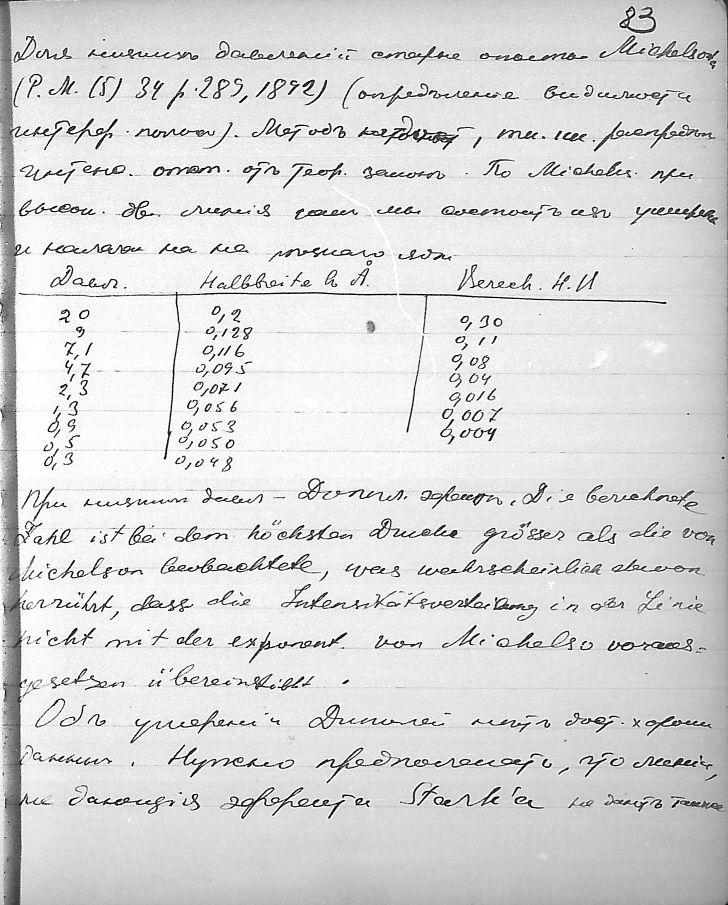 83
Для низшихъ давленій старые опыты Michelson'a
(P. M. (5) 34 p. 289, 1892) (опредѣленіе видимости
интерф. полосъ). Методъ , т. ч. распредѣл
интенс. отъ теор. закона. По Michels. при
высок. дв. линія мы состоитъ изъ уширен
и налага на
Давл. Halbbreite in Å. Berech. H.И
20 0,2 0,30
9 0,128 0,11
7,1 0,116 0,08
4,7 0,095 0,04
2,3 0,071 0,016
1,3 0,056 0,007
0,9 0,053 0,004
0,5 0,050
0,3 0,048
При низшихъ давл – Доппл. эффектъ. Die berechnete
Zahl ist bei dem höchsten Drucke grösser als die von
Michelson beobachtete, was wahrscheinlich davon
herrührt, dass die Intensitätsverteilung in der Linie
nicht mit der exponent. von Michelso voraus-
gesetzen übereinstimmt.
Объ уширеніи Диполей нѣтъ дост. хорош
данныхъ. Нужно предполагать, что линіи,
не дающія эффекта Stark'a не даютъ также